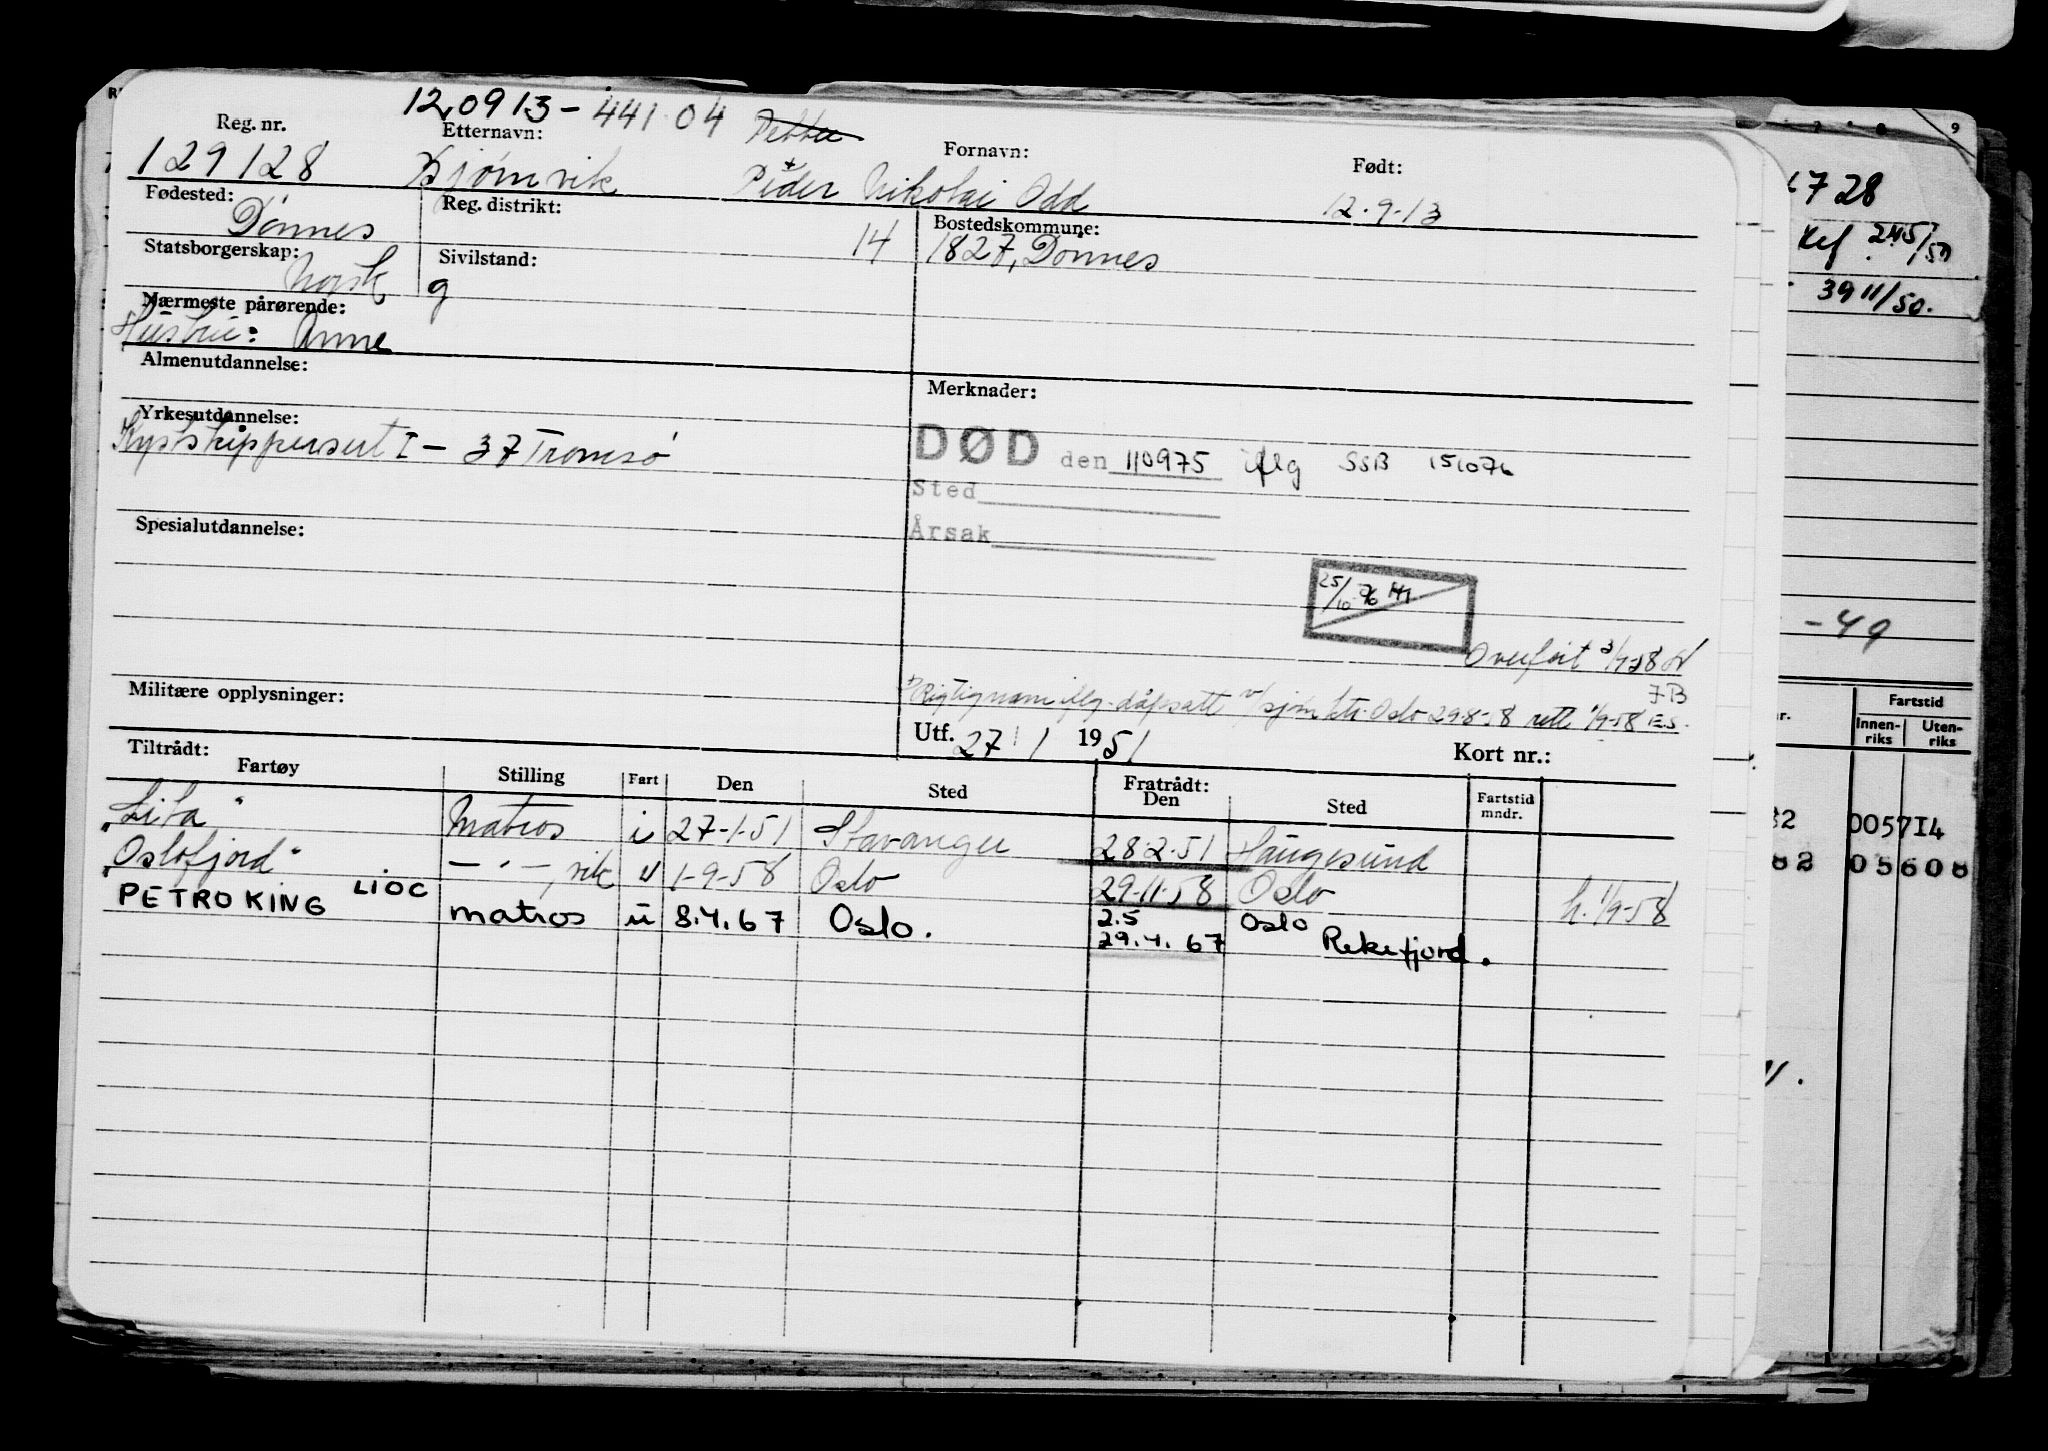 120913-441 04 Petter
Reg. nr. Etternavn: Fornavn: Født:
129128 Bjørnvik Peder Nikolai Odd 12.9.13
Fødested: Reg. distrikt: Bostedskommune:
Dønnes 14 1827, Dönnes
Statsborgerskap: Sivilstand:
Norsk g
Nærmeste pårørende:
Hustru: Anne
Almenutdannelse: Merknader:
Yrkesutdannelse:
Kystskippersert I - 37 Tromsø
DØD den 110975 iflg SSB 151076
Sted
Årsak
Spesialutdannelse:
25/10-76
Overført
Militære opplysninger:
Rigtig navn iflg. dåpsatt v/sjøm.ktr. Oslo 29-8-58 rett 1/9-58 E.S.
Utf. 27/1 1951 Kort nr.:
Tiltrådt: Fratrådt:
Fartøy Stilling Fart Den Sted Den Sted Fartstid mndr.
Matros i 27-1-51 Stavanger 28.2.51 Haugesund
"Oslofjord" — " —, vik u 1-9-58 Oslo 29-11-58 Oslo h. 1/9-58
PETRO KING LIOC matros u 8.4.67 Oslo. 2.5 Oslo
29.4.67 Rekefjord.
6728
245/50
3911/50.
-49
Fartstid
nr. Innen-riks Uten-riks
32 005714
82 05608